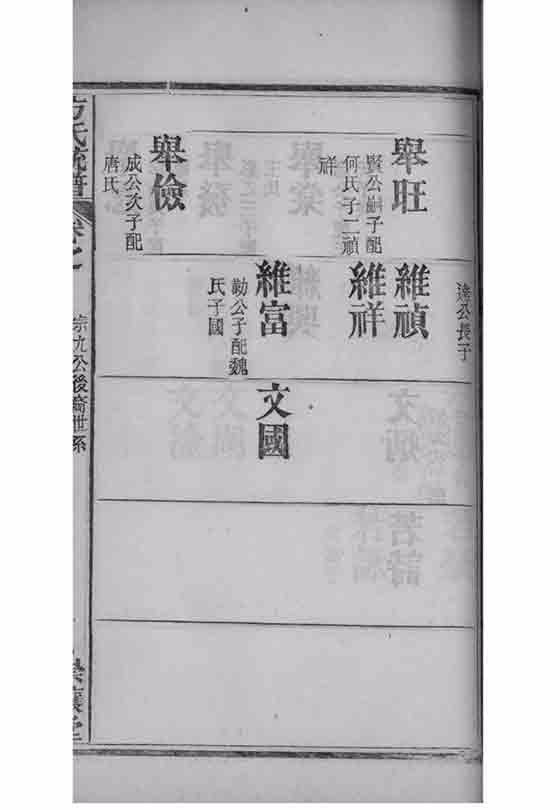 達公長子
舉旺
賢公嗣子配
何氏子二禎
祥
維禎
維祥
維富
勤公子配魏
氏子國
文國
舉儉
成公次子配
唐氏
方氏統譜
卷之
宗九公後裔世系